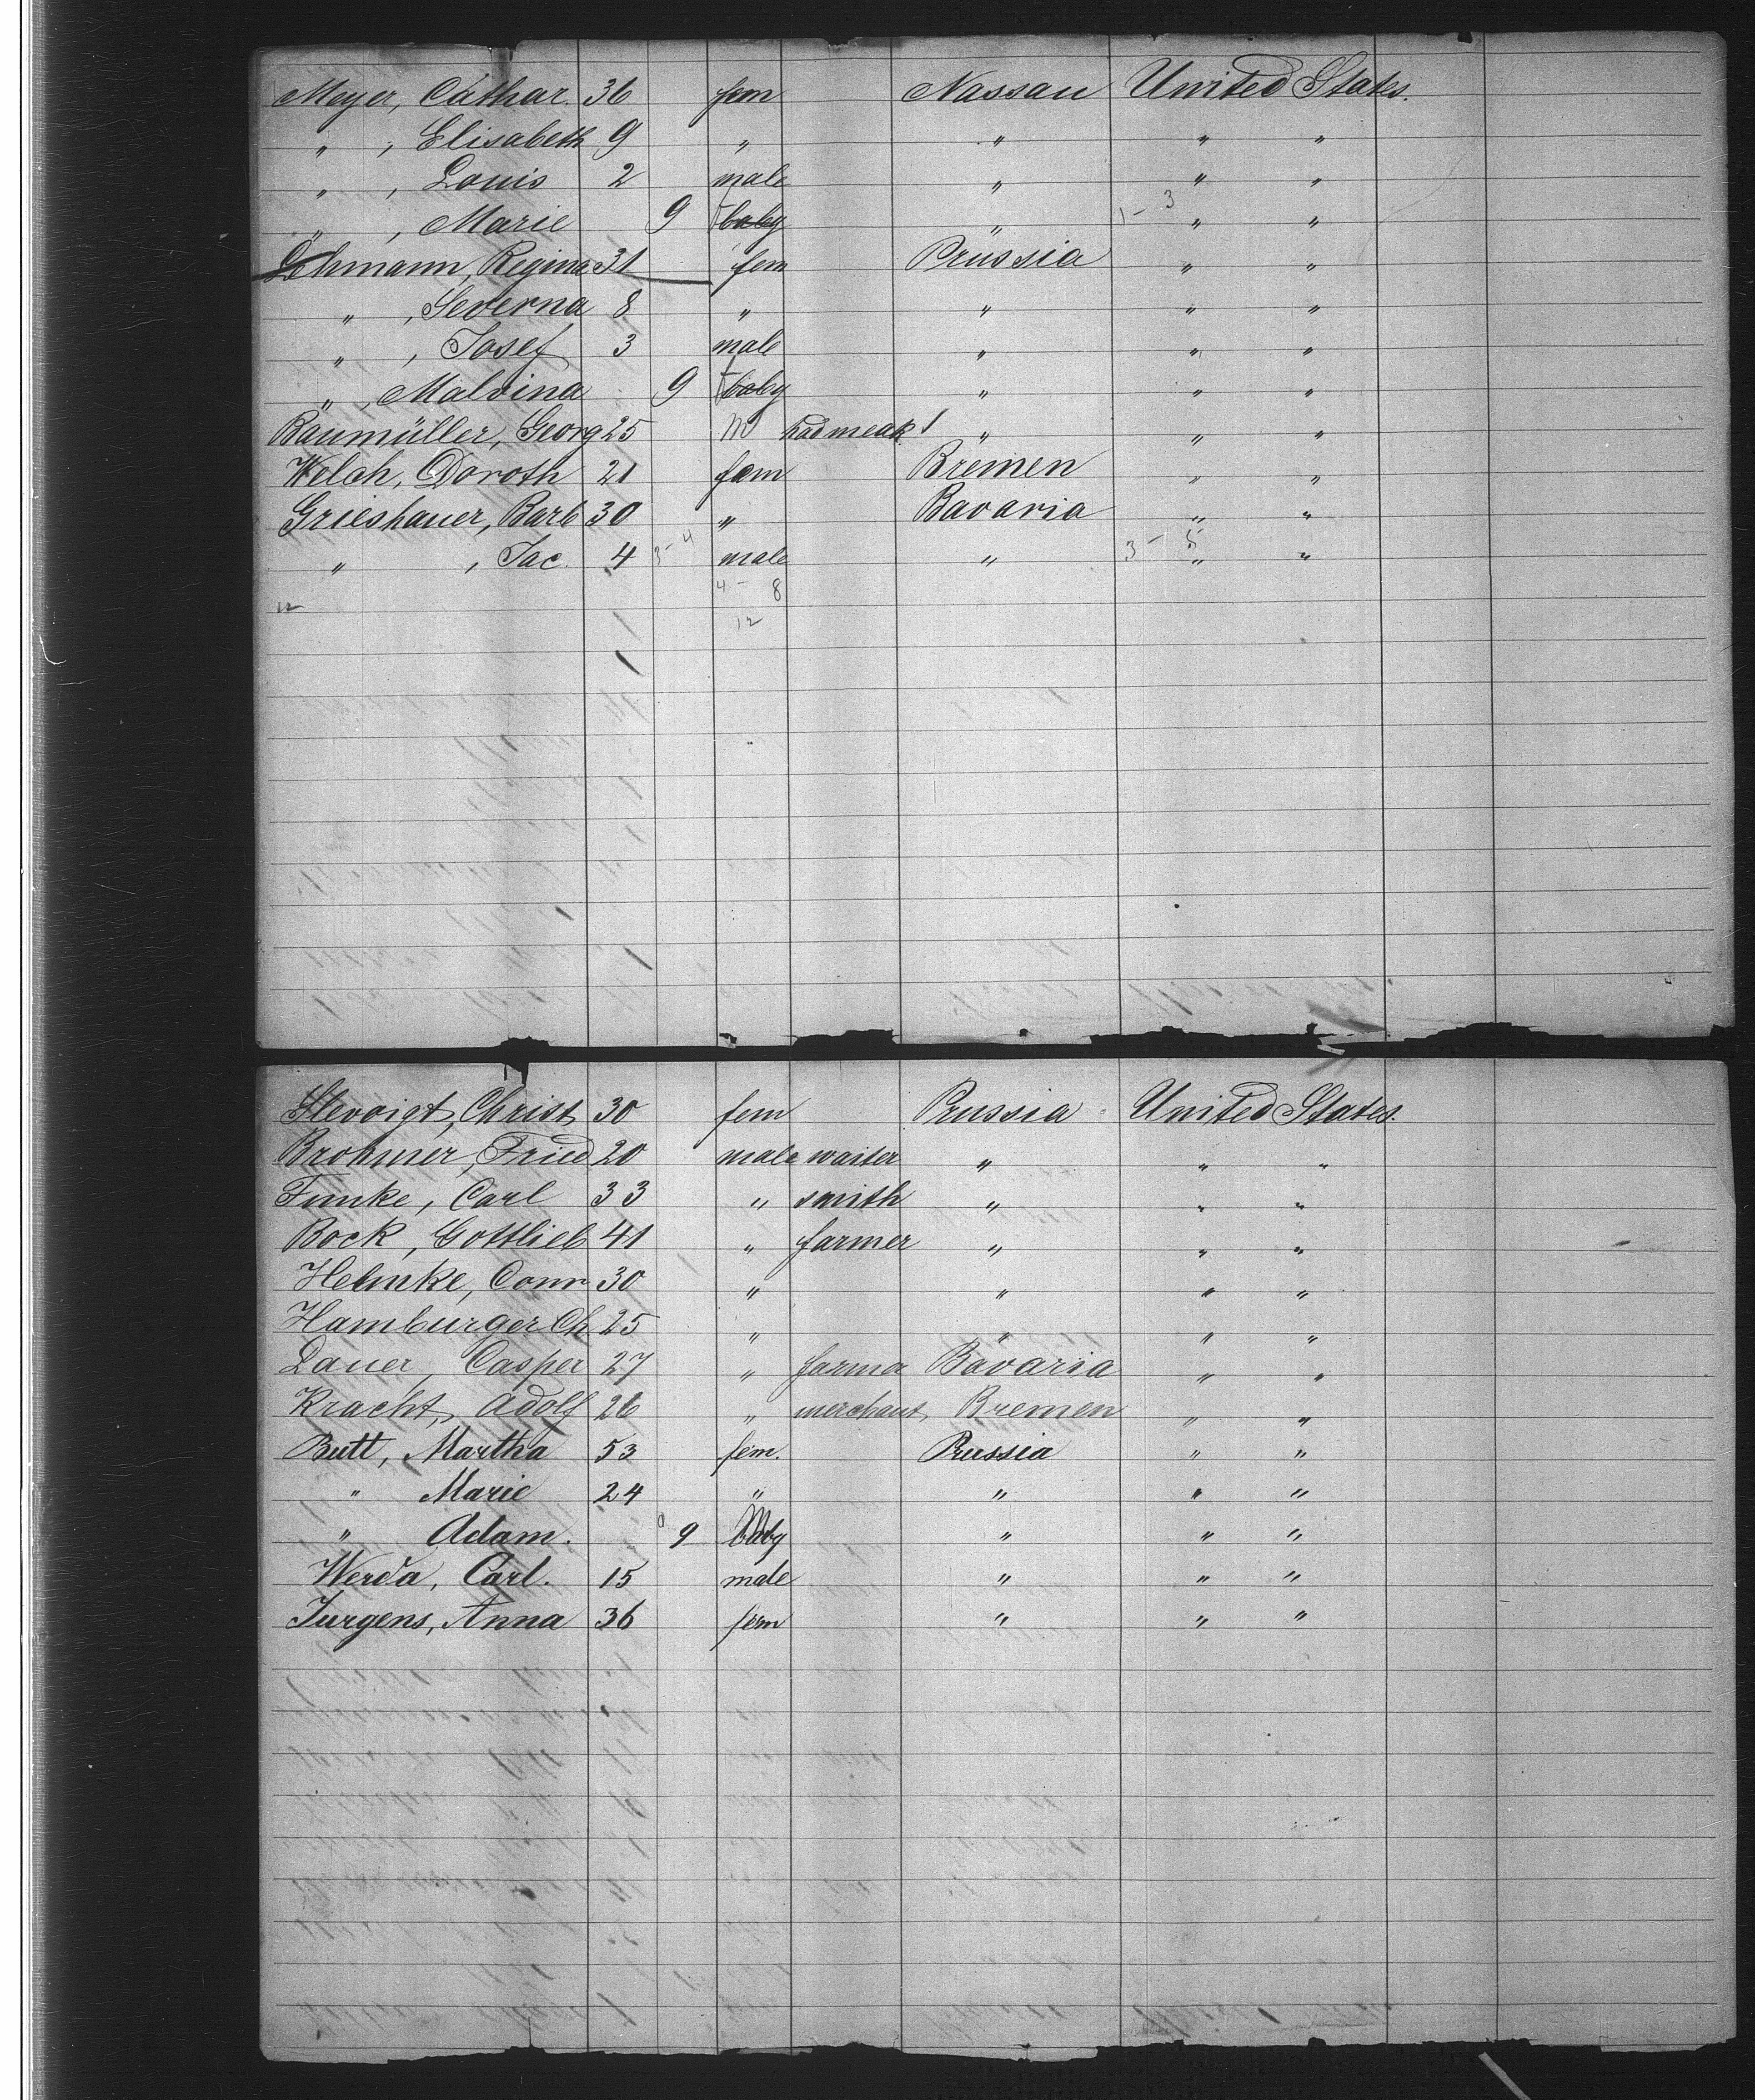 Meyer, Cathar. 36 fem Nassau United States.
" , Elisabeth 9 " " " "
" , Louis 2 male " " "
" , Marie 9 baby " 1-3 " "
Lehmann, Regina 31 fem Prussia " "
" , Severna 8 " " " "
" , Josef 3 male " " "
" , Malvina 9 baby " " "
Baumüller, Georg 25 m hadmeak " " "
Welch, Doroth 21 fem Bremen " "
Grieshauer, Barb 30 " Bavaria " "
" , Jac. 4 3-4 male " 3-5 " "
12 4- 8
12
Slevoigt, Christ 30 fem Prussia United States.
Brohmer, Fried 20 male waiter " " "
Funke, Carl 33 " smith " " "
Bock, Gottlieb 41 " farmer " " "
Helmke, Conr 30 " " " "
Hamburger Ch. 25 " " " "
Lauer, Casper 27 " farmer Bavaria " "
Kracht, Adolf 26 " merchant Bremen " "
Butt, Martha 53 fem. Prussia " "
" Marie 24 " " " "
" Adam. 9 baby " " "
Werda, Carl. 15 male " " "
Jurgens, Anna 36 fem " " "